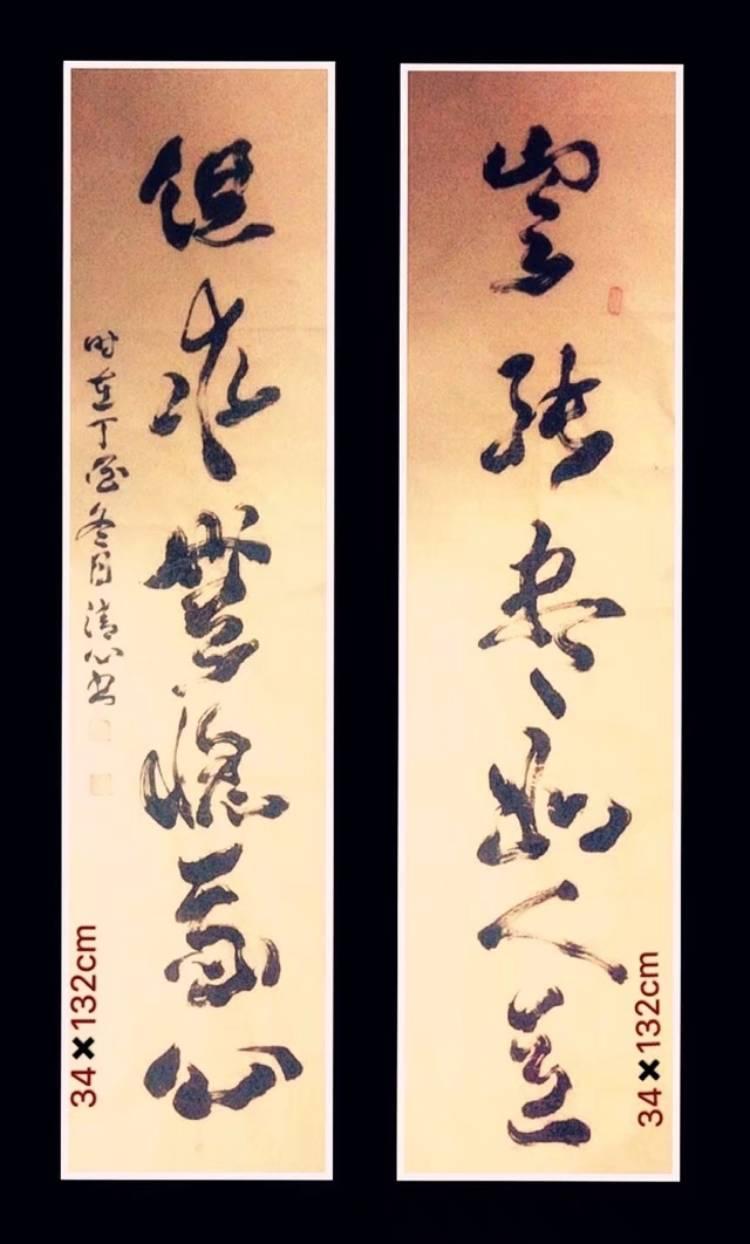 豈能尽如人意
但求無愧我心
时在丁酉冬月清心书
34×132cm
34×132cm